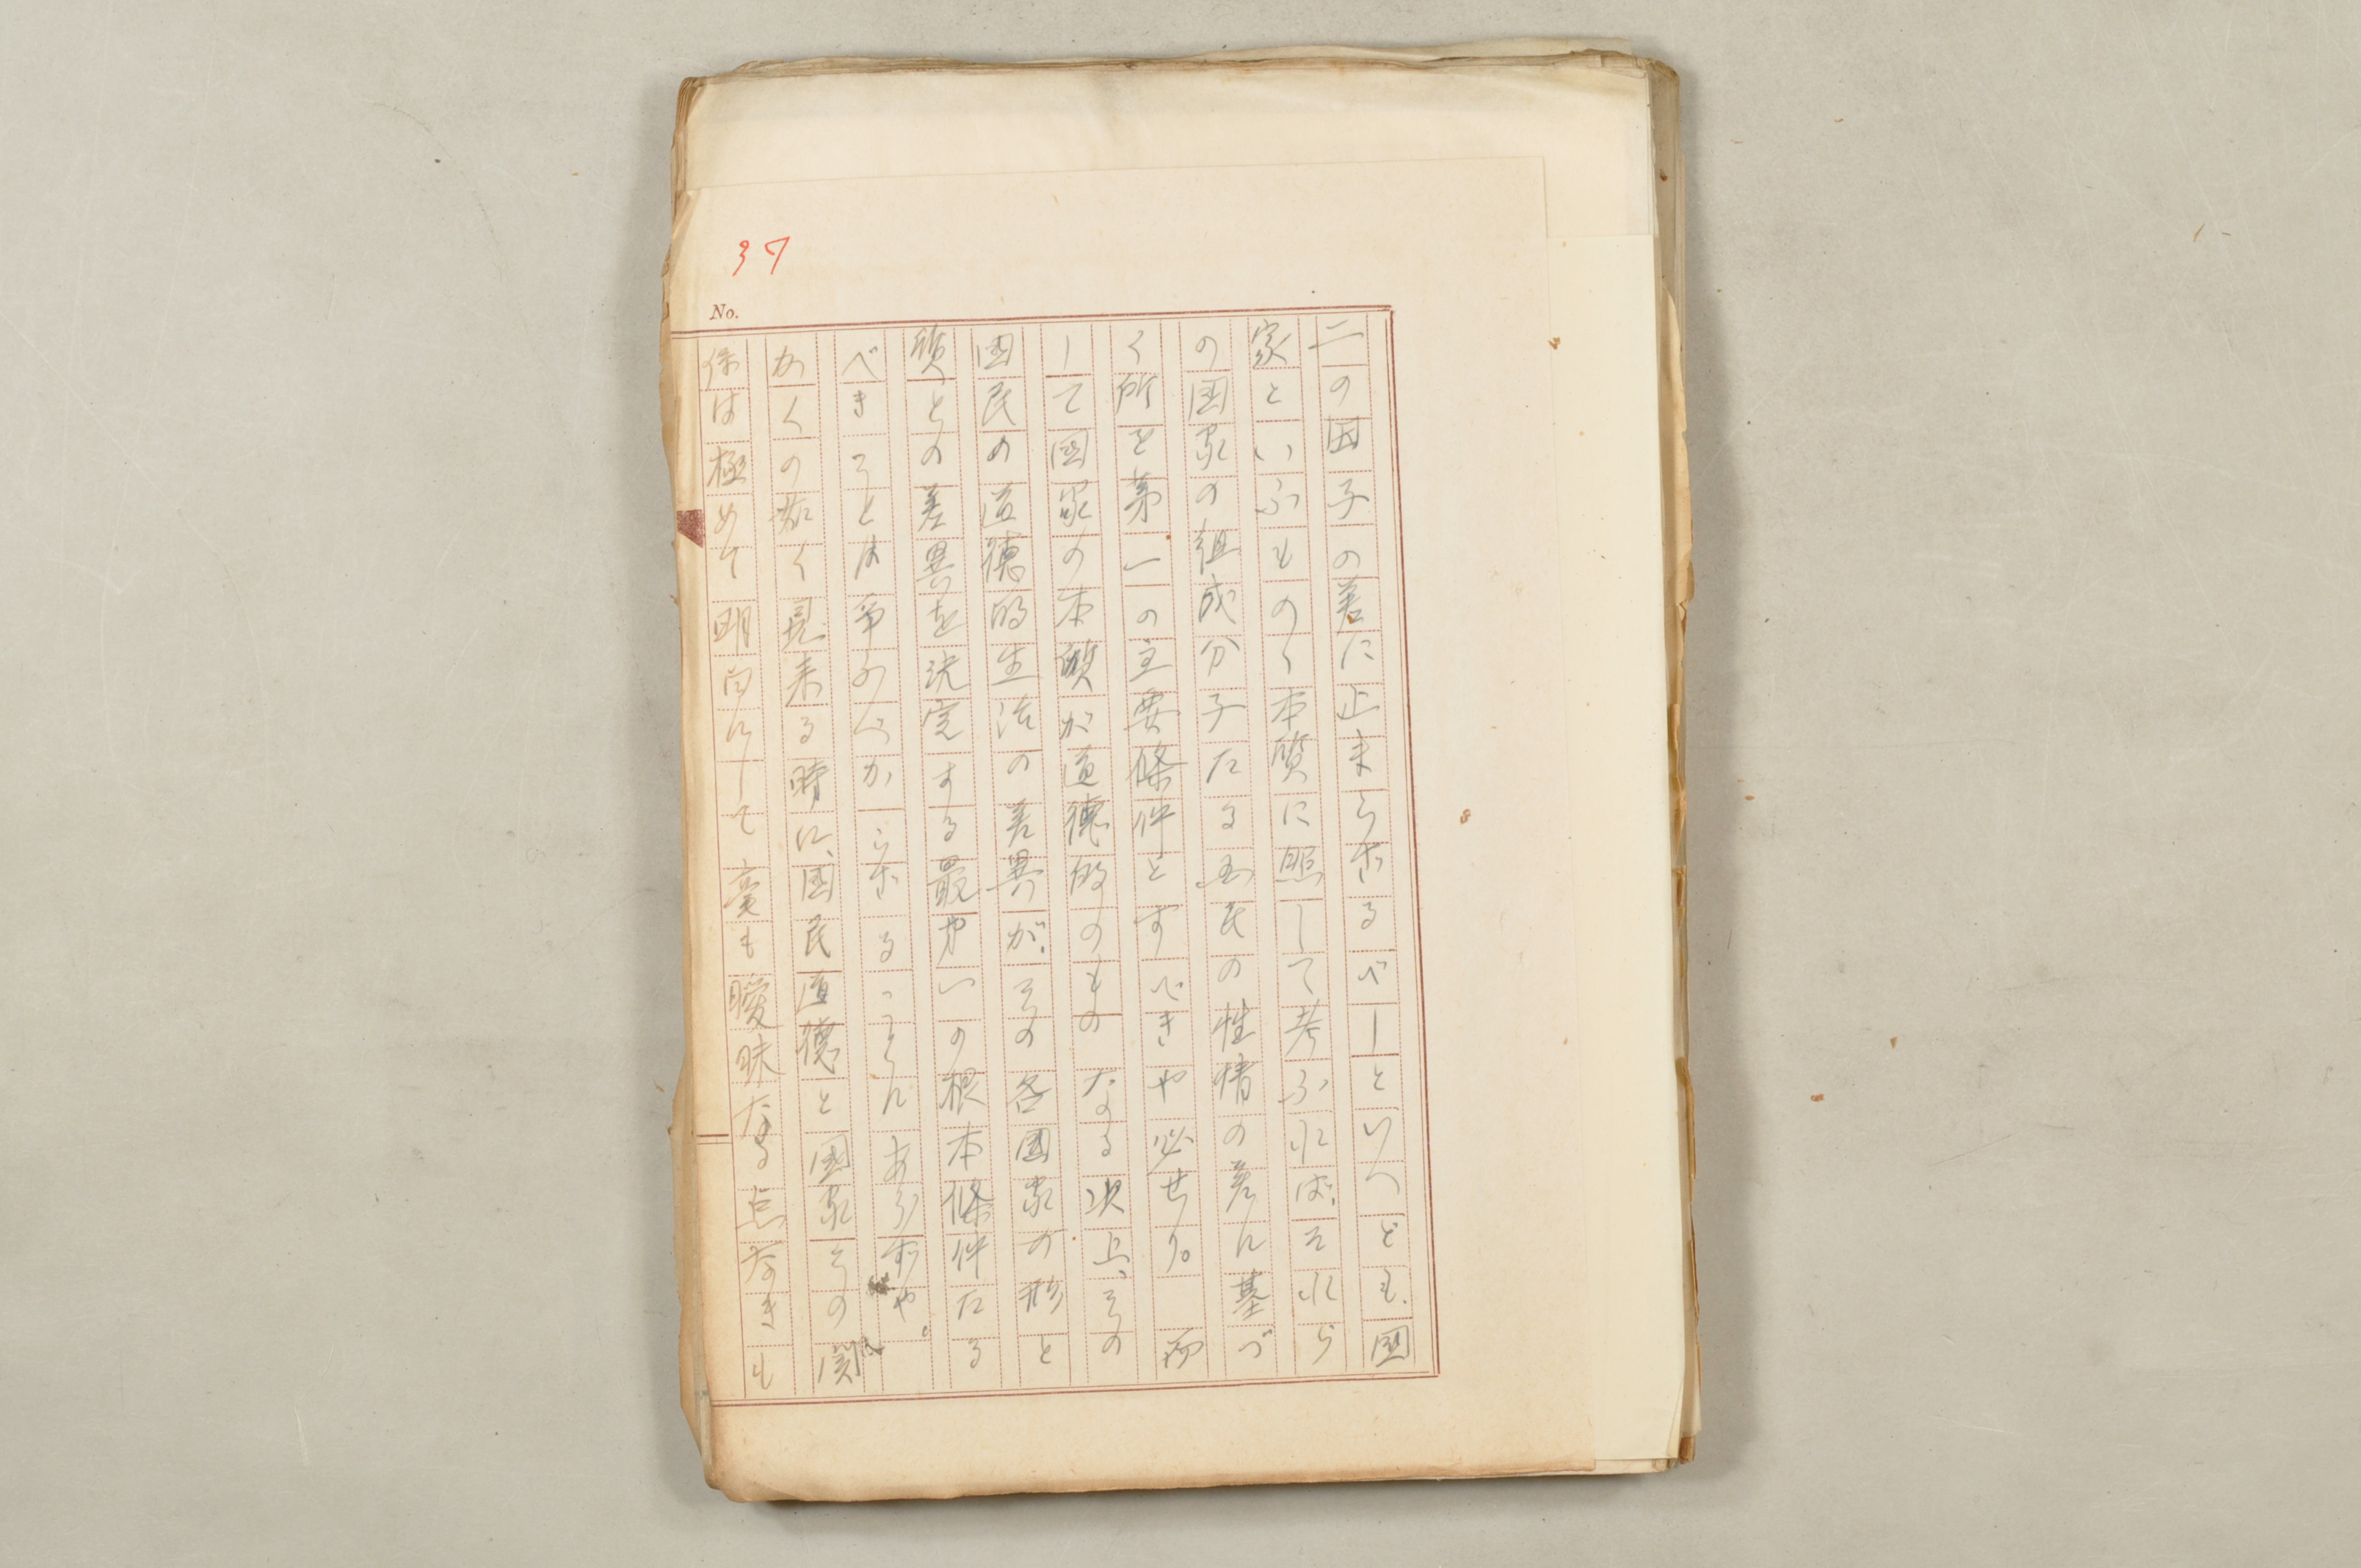 37
No.
二の因子の差に止まらざるべしといへども、国
家といふものゝ本質に照して考ふれば、それら
の国家の組成分子たる国民の性情の差に基づ
く所を第一の主要條件とすべきや必せり。而
して国家の本質が道徳的のものなる以上、その
国民の道徳的生活の差異が、その各国家の形と
質との差異を決定する最や いの根本條件たる
べきことは争ふべからざることにあらずや。
かくの如く見来る時に、国民道徳と国家その関
係は極めて明白にして毫も曖昧なる点なきも